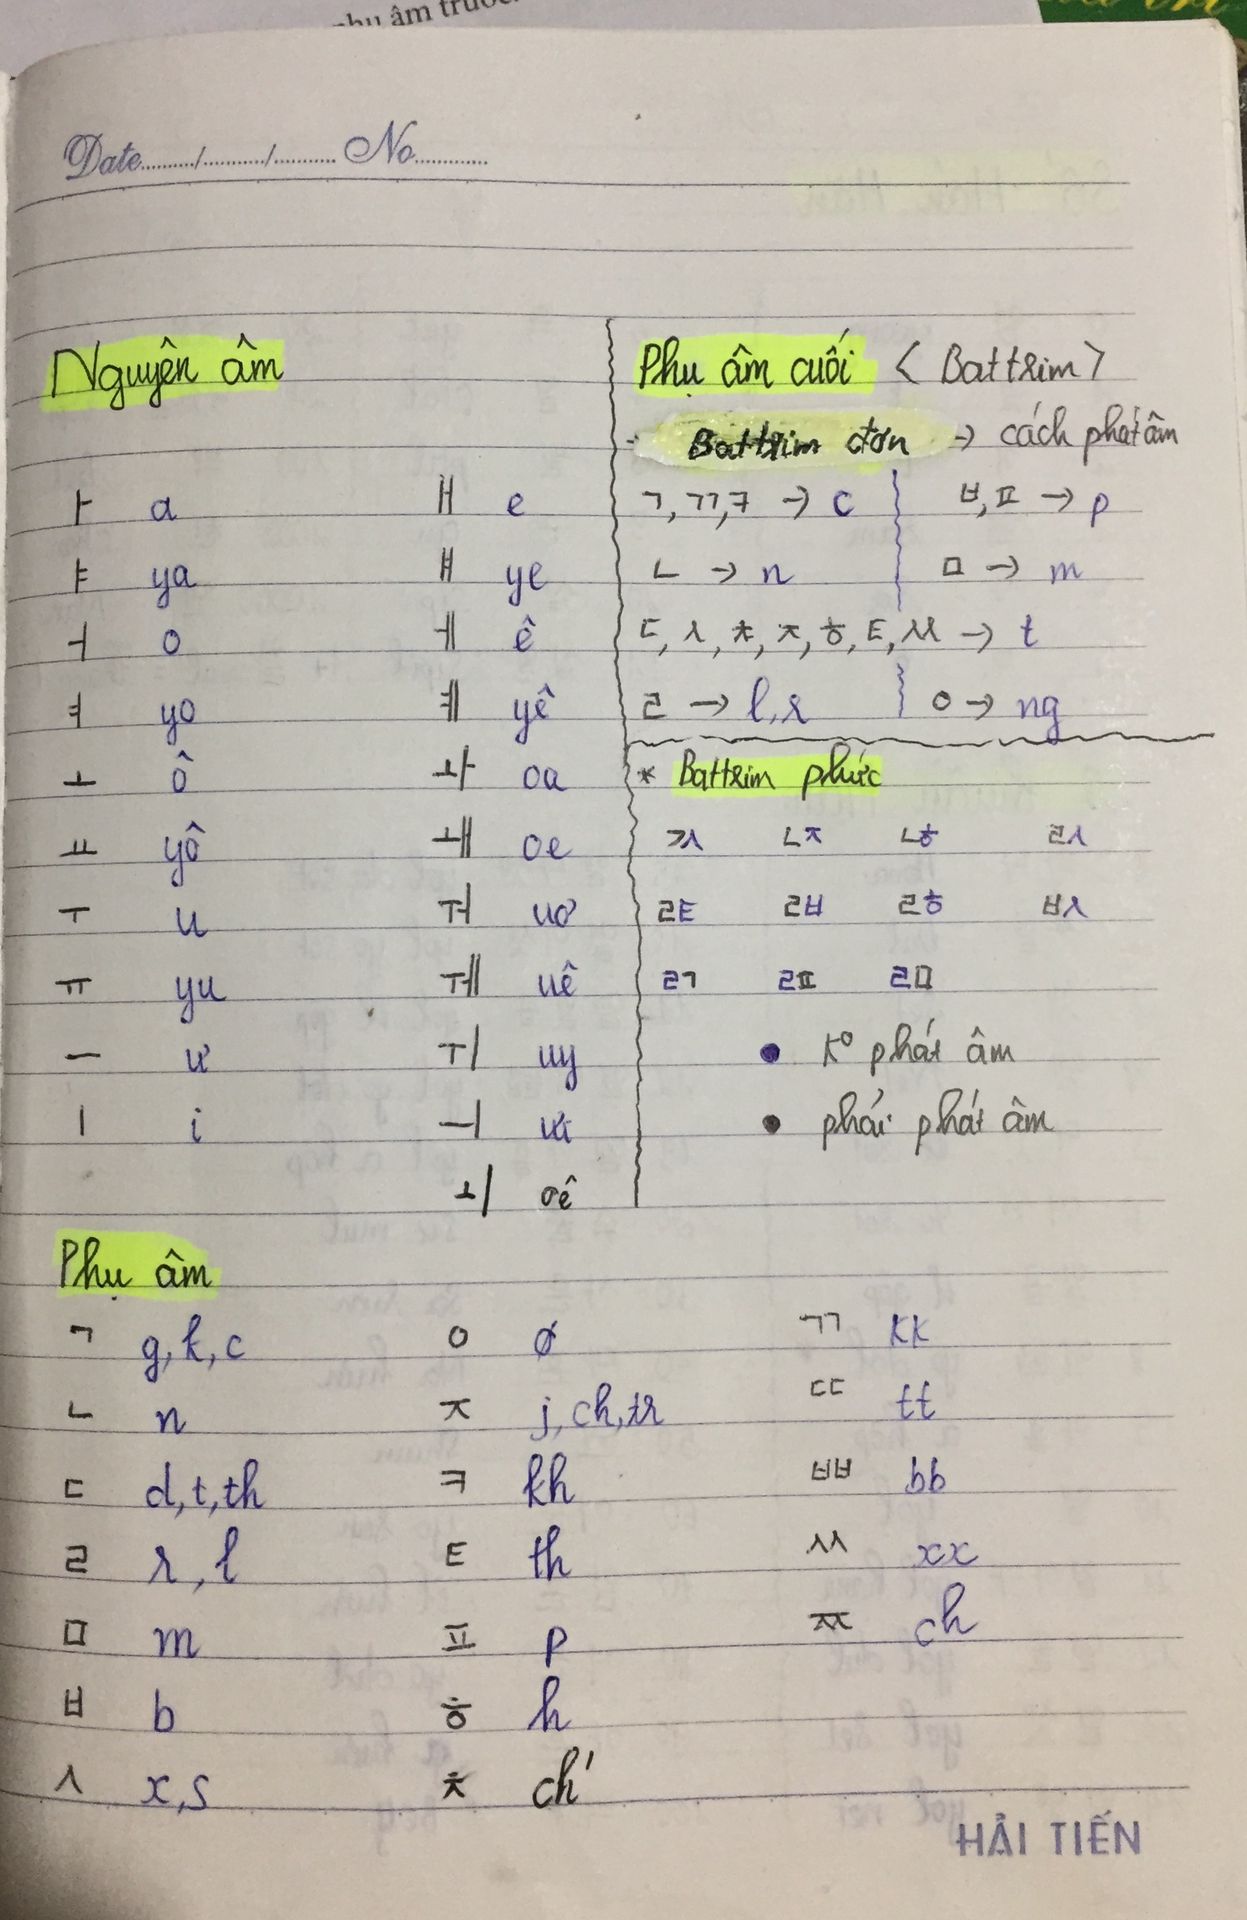 phụ âm trước
Date........../.........../........... No.............
Nguyên âm
ㅏ a ㅐ e
ㅑ ya ㅒ ye
ㅓ o ㅔ ê
ㅕ yo ㅖ yê
ㅗ ô ㅘ oa
ㅛ yô ㅙ oe
ㅜ u ㅝ uơ
ㅠ yu ㅞ uê
ㅡ ư ㅟ uy
ㅣ i ㅢ ưi
ㅚ oê
Phụ âm cuối < Battrim >
- Battrim đơn → cách phát âm
ㄱ, ㄲ, ㅋ → c ㅂ, ㅍ → p
ㄴ → n ㅁ → m
ㄷ, ㅅ, ㅊ, ㅈ, ㅎ, ㅌ, ㅆ → t
ㄹ → l, r ㅇ → ng
* Battrim phức
ㄳ ㄵ ㄶ ㄽ
ㄾ ㄼ ㅀ ㅄ
ㄺ ㄿ ㄻ
• K° phát âm
• phải phát âm
Phụ âm
ㄱ g, k, c ㅇ ø ㄲ kk
ㄴ n ㅈ j, ch, tr ㄸ tt
ㄷ d, t, th ㅋ kh ㅃ bb
ㄹ r, l ㅌ th ㅆ xx
ㅁ m ㅍ p ㅉ ch
ㅂ b ㅎ h
ㅅ x, s ㅊ ch'
HẢI TIẾN